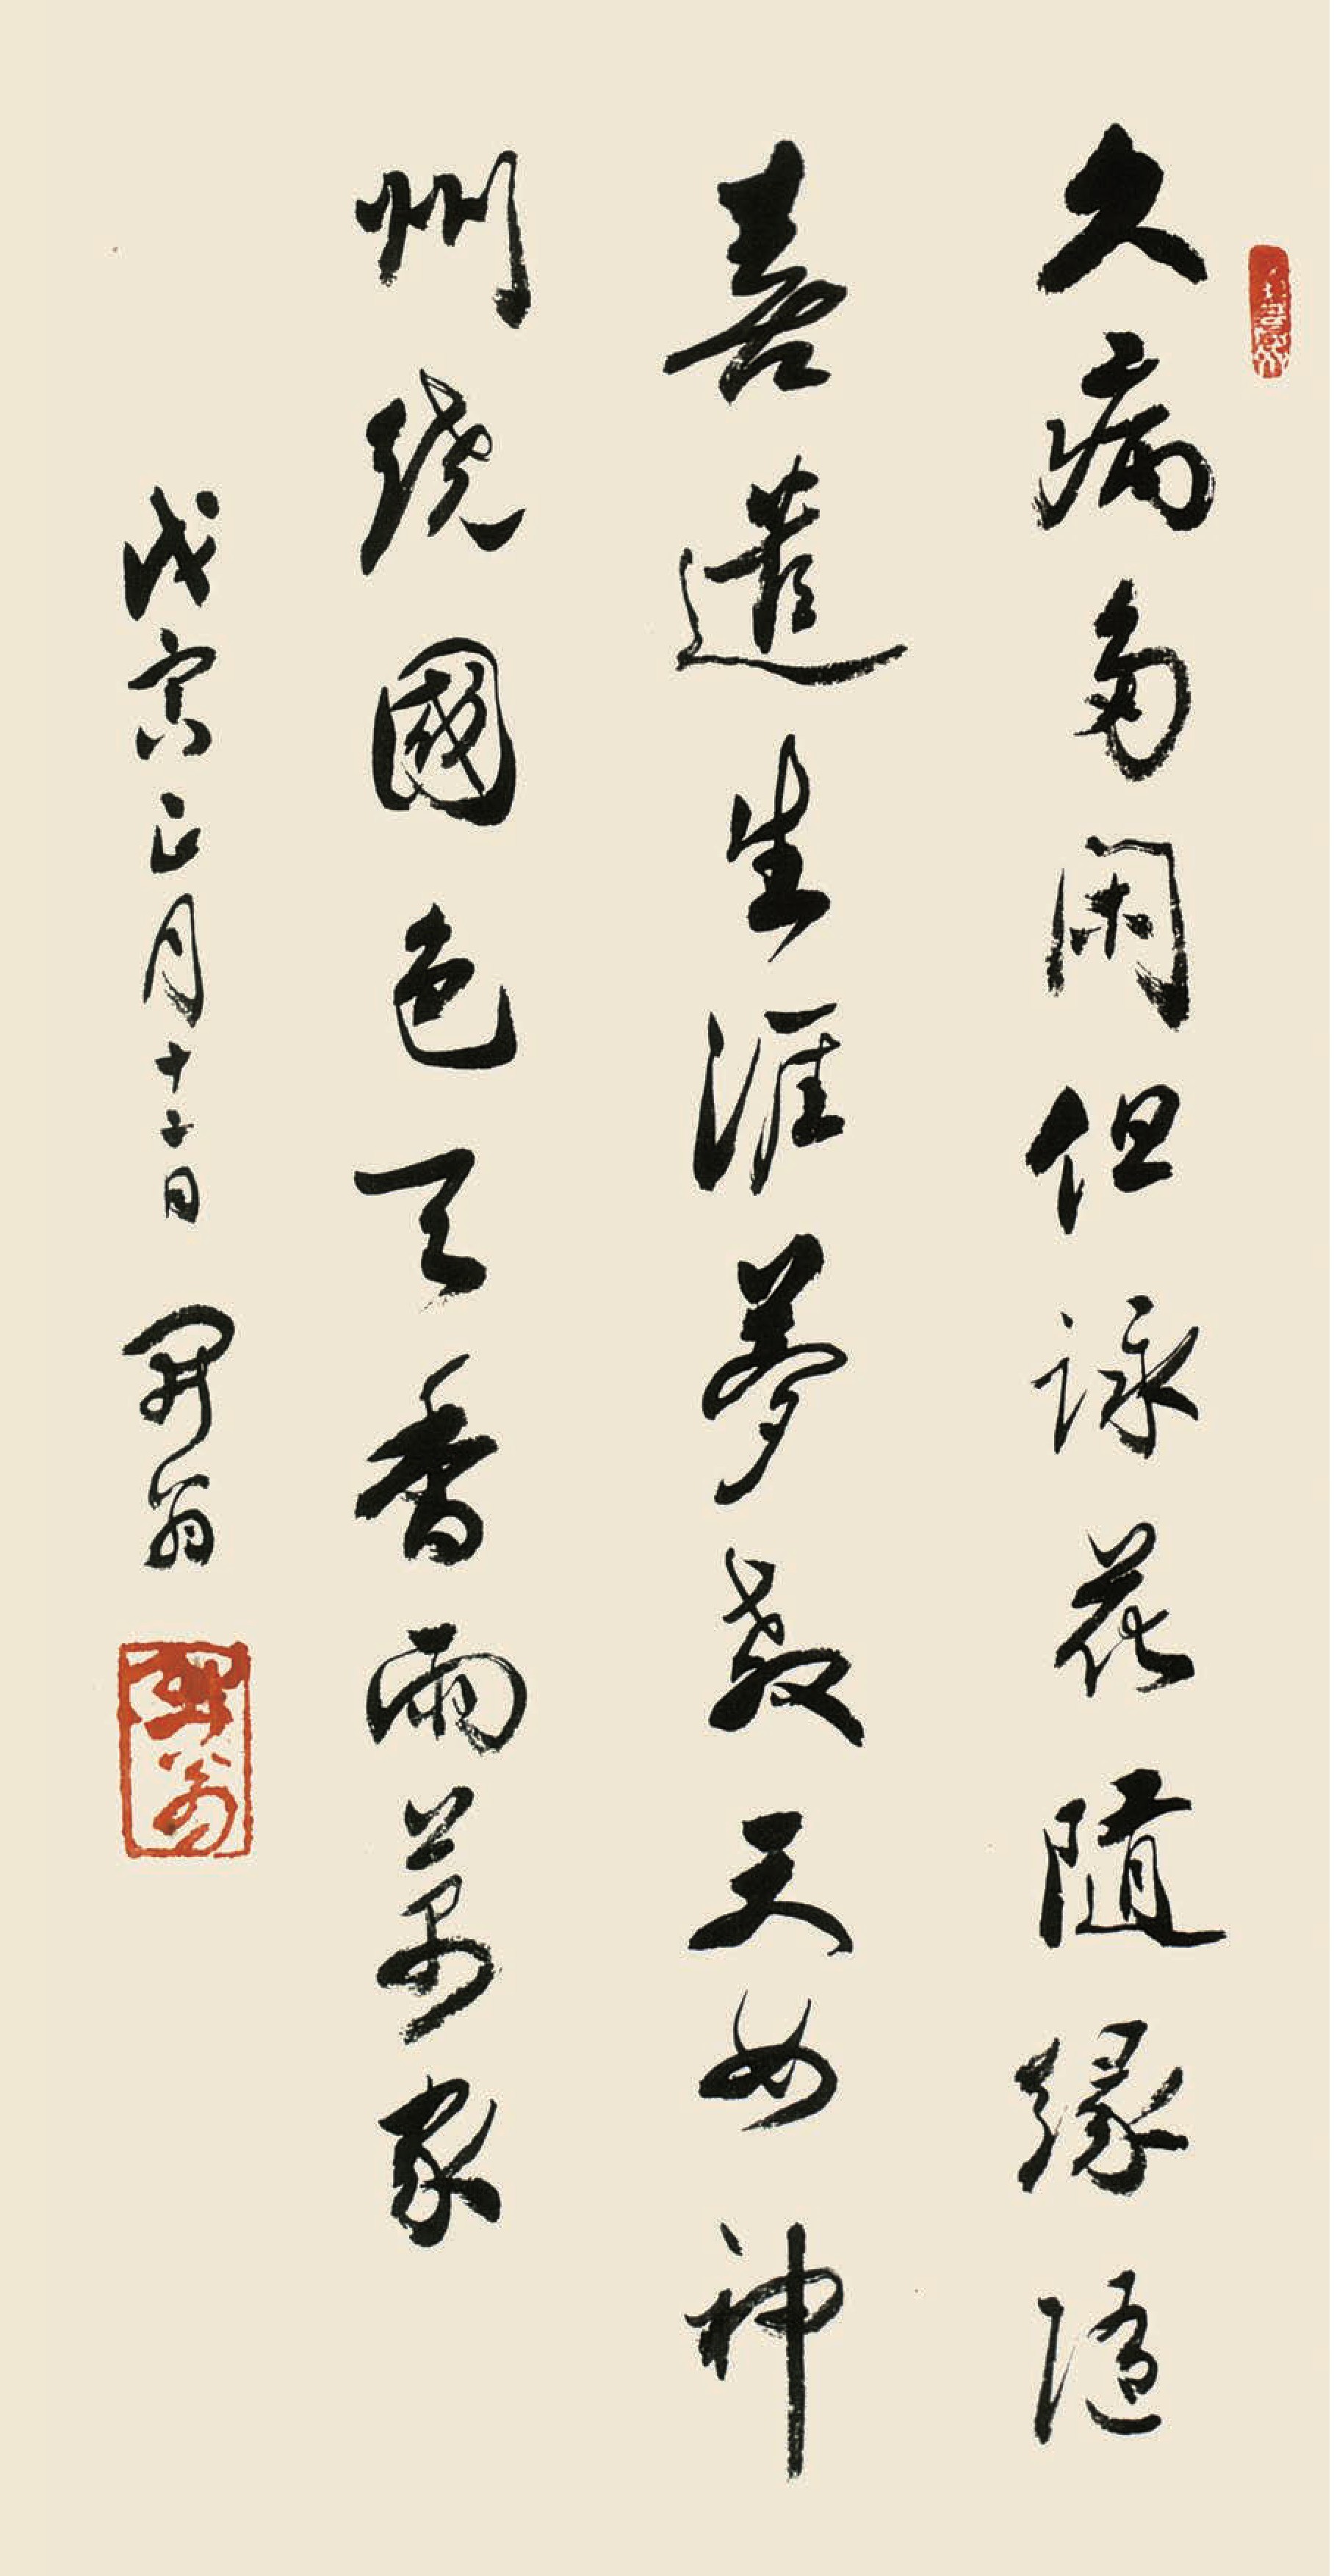 久病多閑但詠花隨緣隨
喜遣生涯夢教天女神
州繞國色天香雨萬家
戊寅正月十二日 開翁